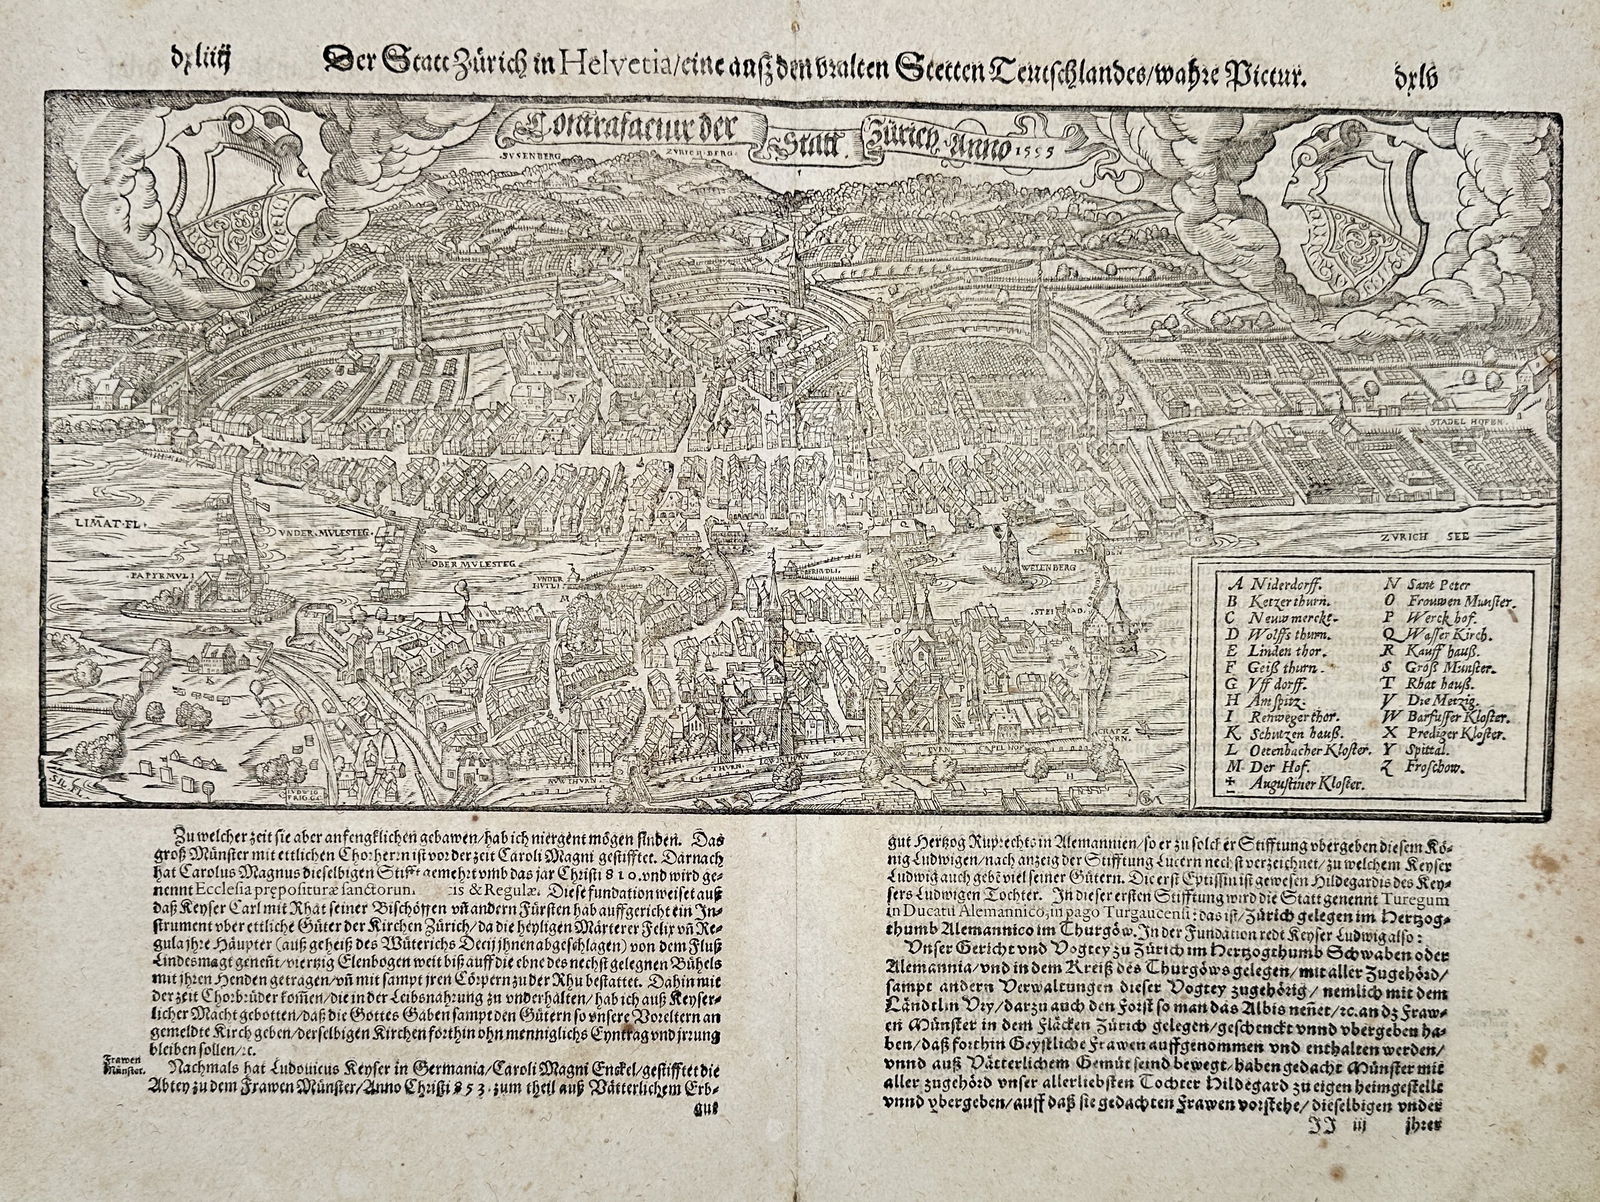 dxliiij
Der Statt Zürich in Helvetia/eine ausz den vralten Stetten Teutschlandes/wahre Pictur.
dxlv
Contrafactur der Statt Zürich Anno 1555
SVSENBERG
ZVRICH BERG
STADEL HOFEN
LIMAT. FL.
VNDER. MVLESTEG.
PAPYRMVLI
OBER MVLESTEG
VNDER
WELENBERG
ZVRICH SEE
SIL. FL.
A Niderdorff.
B Ketzerthurn.
C Neuwmerckt.
D Wolffs thurn.
E Linden thor.
F Geiß thurn.
G Vff dorff.
H Am spitz.
I Renweger thor.
K Schutzen hauß.
L Oetenbacher Kloster.
M Der Hof.
+ Augustiner Kloster.
N Sant Peter
O Frouwen Munster.
P Werck hof.
Q Wasser Kirch.
R Kauff hauß.
S Groß Munster.
T Rhat hauß.
V Die Metzig.
W Barfusser Kloster.
X Prediger Kloster.
Y Spittal.
Z Froschow.
Zu welcher zeit sie aber anfengklichen gebawen/hab ich niergent mögen finden. Das
groß Münster mit ettlichen Chorherrn ist vor der zeit Caroli Magni gestifftet. Darnach
hat Carolus Magnus dieselbigen Stifft gemehrt vmb das jar Christi 810. vnd wird ge-
nennt Ecclesia præpositurę sanctorum & Regulæ. Diese fundation weiset auß
daß Keyser Carl mit Rhat seiner Bischöffen vñ andern Fürsten hab auffgericht ein In-
strument vber ettliche Güter der Kirchen Zürich/da die heyligen Märterer Felix vñ Re-
gula jhre Häupter (auß geheiß des Wüterichs Decij jhnen abgeschlagen) von dem Fluß
Lindesmagt geneñt/viertzig Elenbogen weit biß auff die ebne des nechst gelegnen Bühels
mit jhren Henden getragen/vñ mit sampt jren Cörpern zu der Rhu bestattet. Dahin mit
der zeit Chorbrüder kom̃en/die in der Leibsnahrung zu vnderhalten/hab ich auß Keyser-
licher Macht gebotten/daß die Gottes Gaben sampt den Gütern so vnsere Voreltern an
gemeldte Kirch geben/derselbigen Kirchen forthin ohn menniglichs Eyntrag vnd jrrung
bleiben sollen/ꝛc.
Frawen
Münster.
Nachmals hat Ludouicus Keyser in Germania/Caroli Magni Enckel/gestifftet die
Abtey zu dem Frawen Münster/Anno Christi 853. zum theil auß Vätterlichem Erb-
gut
gut Hertzog Ruprechts in Alemannien/so er zu solcher Stifftung vbergeben diesem Kö-
nig Ludwigen/nach anzeig der Stifftung Lucern nechst verzeichnet/zu welchem Keyser
Ludwig auch gebē viel seiner Gütern. Die erst Eptissin ist gewesen Hildegardis des Key-
sers Ludwigen Tochter. In dieser ersten Stifftung wird die Statt genennt Turegum
in Ducatu Alemannico, in pago Turgaucensi: das ist/Zürich gelegen im Hertzog-
thumb Alemannico im Thurgöw. In der Fundation redt Keyser Ludwig also:
Vnser Gericht vnd Vogtey zu Zürich im Hertzogthumb Schwaben oder
Alemannia/vnd in dem Kreiß des Thurgöws gelegen/mit aller Zugehörd/
sampt andern Verwaltungen dieser Vogtey zugehörig/nemlich mit dem
Ländtlin Vry/darzu auch den Forst so man das Albis neñet/ꝛc. an dz Fraw-
en Münster in dem Fläcken Zürich gelegen/geschenckt vnnd vbergeben ha-
ben/daß forthin Geystliche Frawen auffgenommen vnd enthalten werden/
vnnd auß Vätterlichem Gemüt seind bewegt/haben gedacht Münster mit
aller zugehörd vnser allerliebsten Tochter Hildegard zu eigen heimgestellt
vnnd vbergeben/auff daß sie gedachten Frawen vorstehe/dieselbigen vnder
JJ iij
jhrer